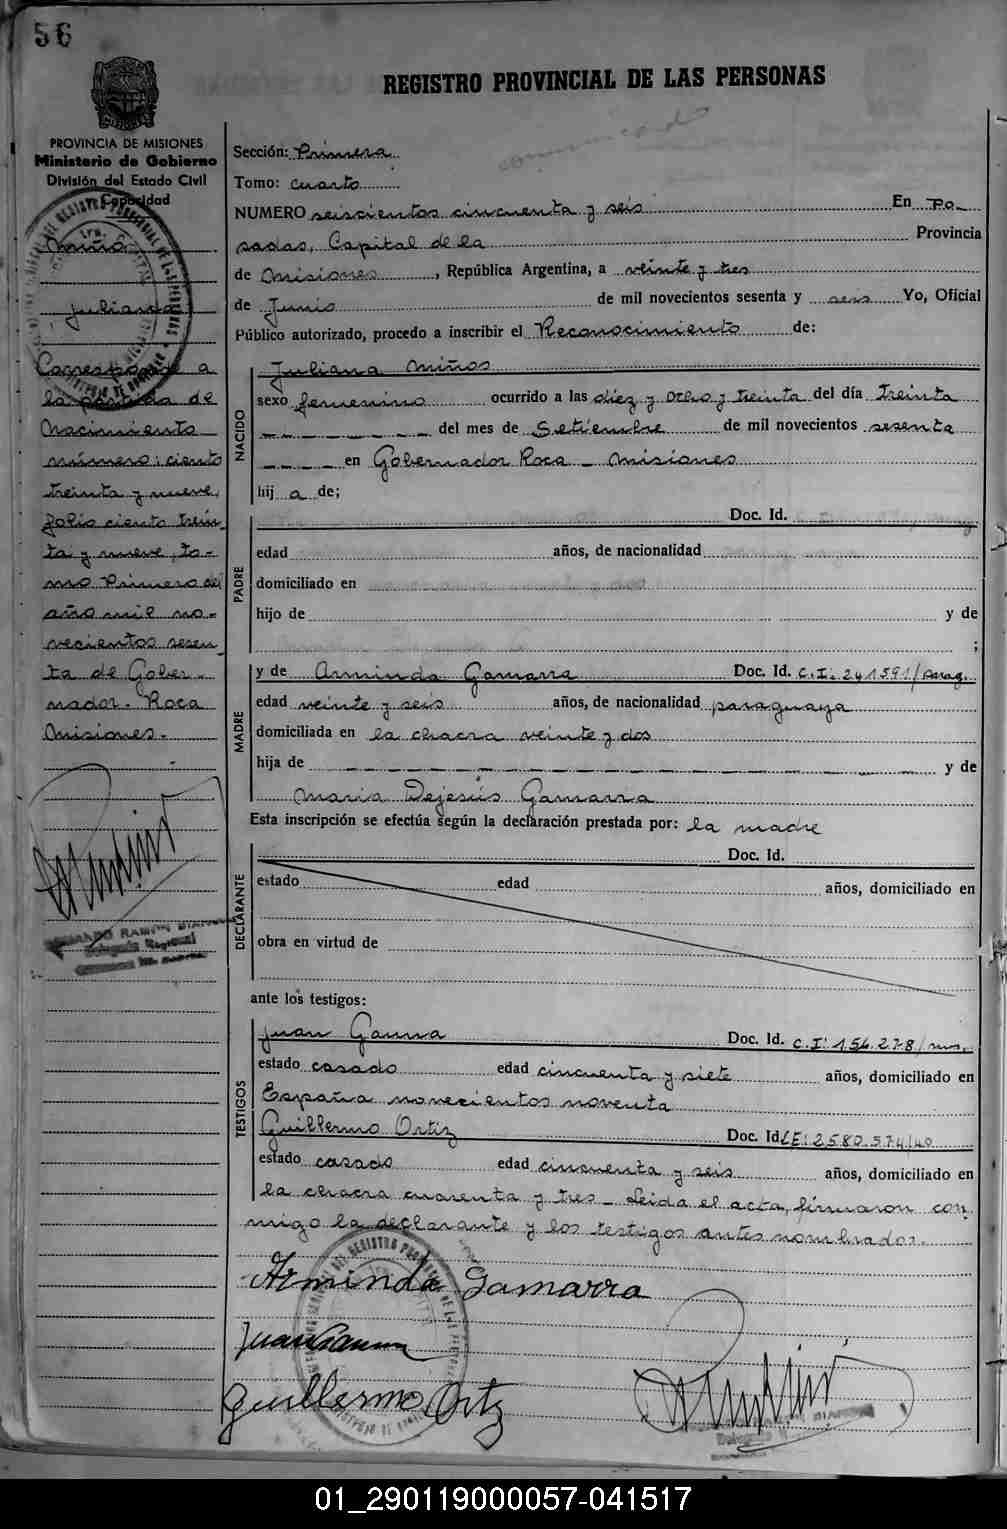 56
REGISTRO PROVINCIAL DE LAS PERSONAS
PROVINCIA DE MISIONES
Ministerio de Gobierno
División del Estado Civil
Capacidad
Miño
Juliana
Corresponde a
la partida de
Nacimiento
número: ciento
treinta y nueve,
folio ciento trein
ta y nueve, to-
mo Primero del
año mil no-
vecientos sesen
ta de Gober-
nador. Roca
Misiones.-
comunicado
Sección: Primera
Tomo: cuarto
NUMERO seiscientos cincuenta y seis En Po-
sadas, Capital de la Provincia
de Misiones, República Argentina, a veinte y tres
de Junio de mil novecientos sesenta y seis Yo, Oficial
Público autorizado, procedo a inscribir el Reconocimiento de:
NACIDO
Juliana Miños
sexo femenino ocurrido a las diez y ocho y treinta del día treinta
del mes de Setiembre de mil novecientos sesenta
en Gobernador Roca - Misiones
hij a de;
PADRE
Doc. Id.
edad años, de nacionalidad
domiciliado en
hijo de y de
;
MADRE
y de Arminda Gamarra Doc. Id. C.I: 241591/parag.
edad veinte y seis años, de nacionalidad paraguaya
domiciliada en la chacra veinte y dos
hija de y de
Maria Dejesús Gamarra
Esta inscripción se efectúa según la declaración prestada por: la madre
DECLARANTE
Doc. Id.
estado edad años, domiciliado en
obra en virtud de
ante los testigos:
TESTIGOS
Juan Gauna Doc. Id. C.I: 156.278/mis.
estado casado edad cincuenta y siete años, domiciliado en
España novecientos noventa
Guillermo Ortiz Doc. Id LE: 2580.574/40
estado casado edad cincuenta y seis años, domiciliado en
la chacra cuarenta y tres - Leida el acta, firmaron con
migo la declarante y los testigos antes nombrados.
Arminda Gamarra
Juan Gauna
Guillermo Ortiz
01_290119000057-041517